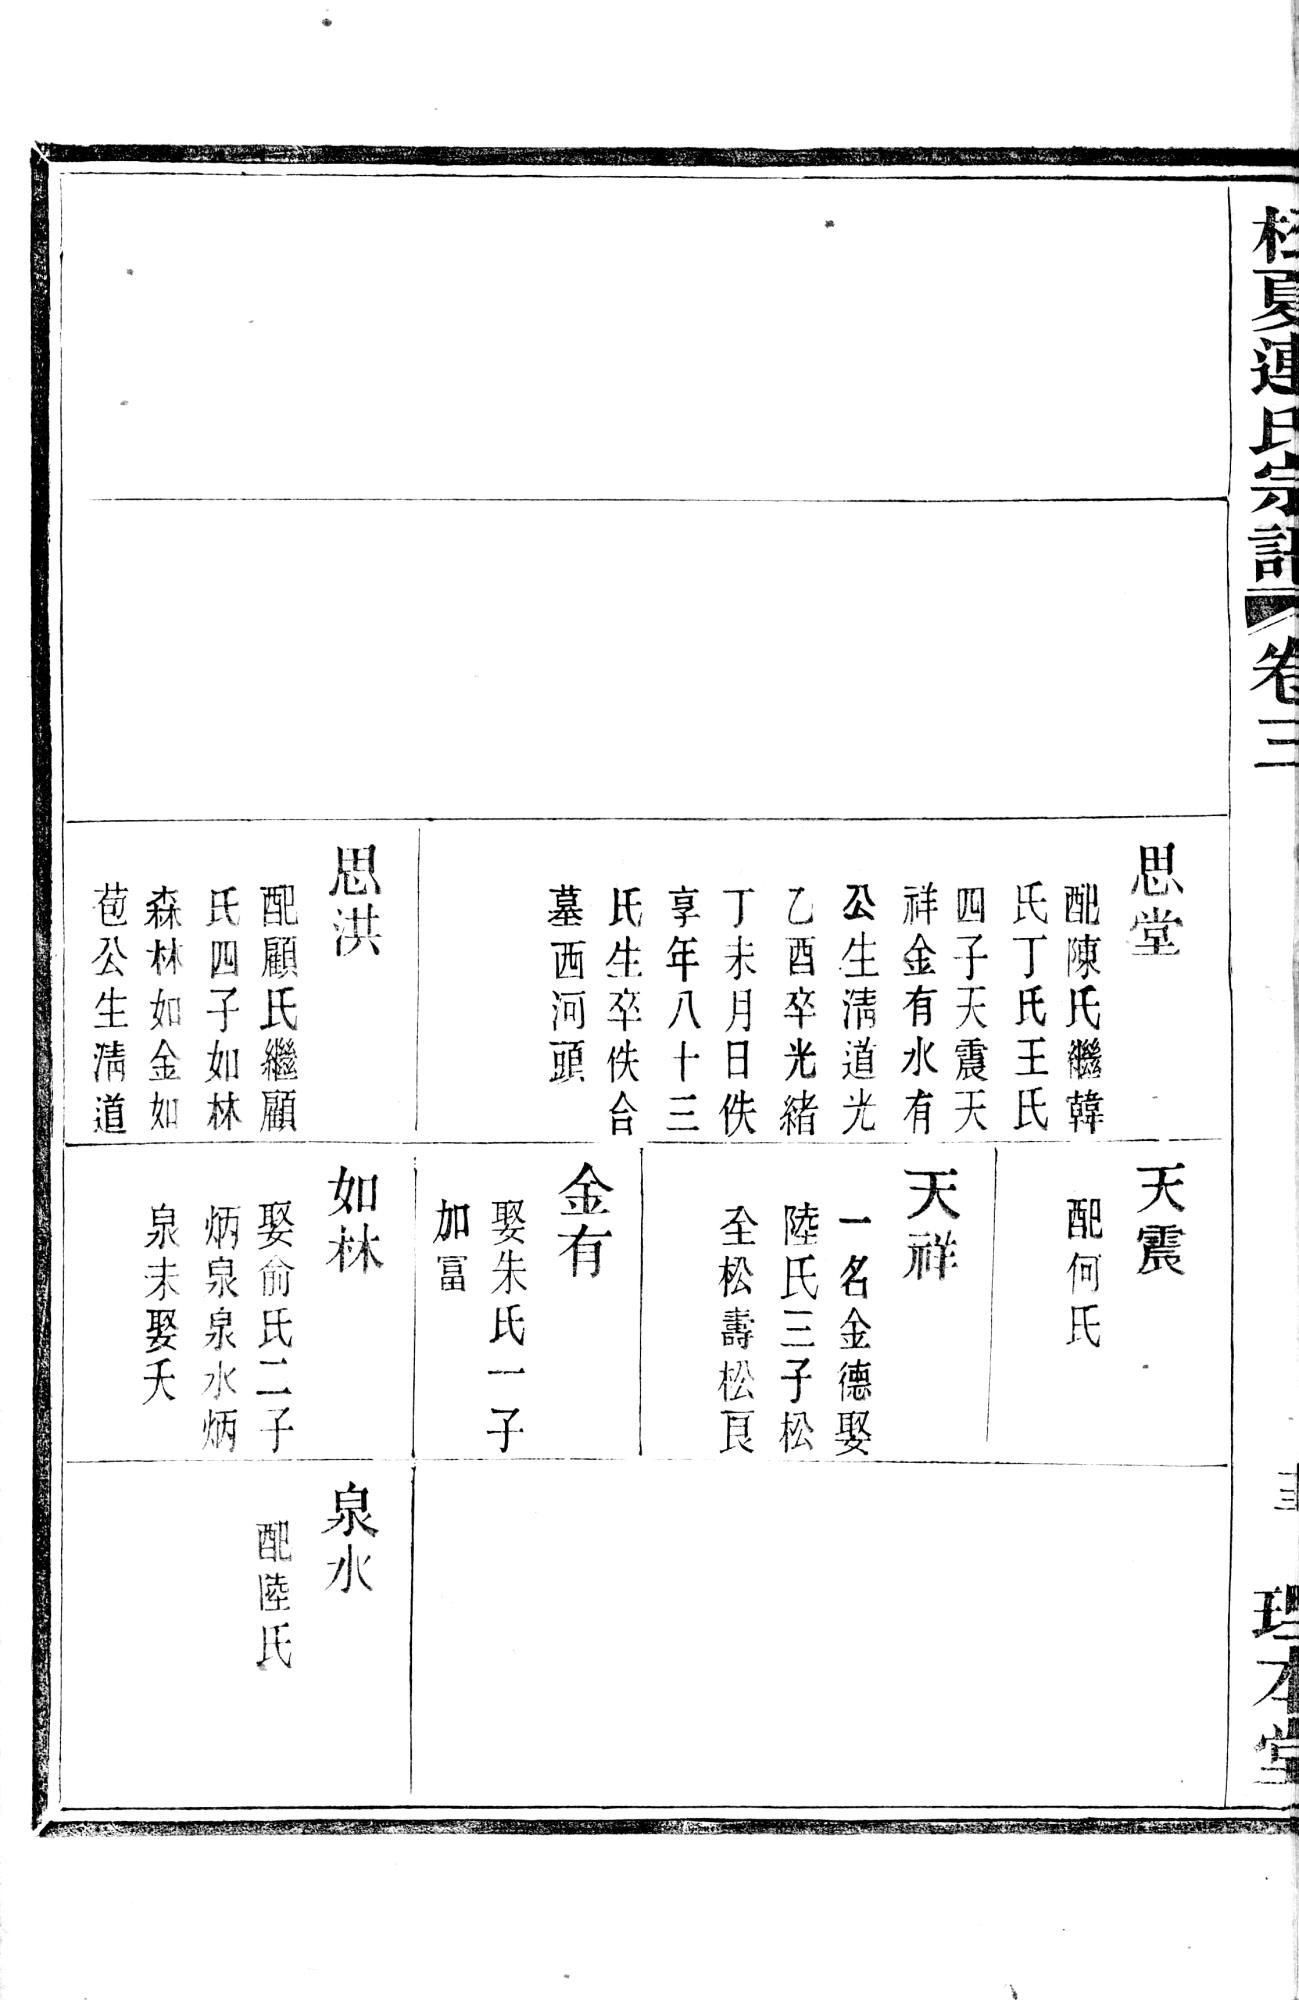 夏連氏宗譜
卷三
理本堂
思堂
配陳氏繼韓
氏丁氏王氏
四子天震天
祥金有水有
公生淸道光
乙酉卒光緒
丁未月日佚
享年八十三
氏生卒佚合
墓西河頭
思洪
配顧氏繼顧
氏四子如林
森林如金如
苞公生淸道
天震
配何氏
天祥
一名金德娶
陸氏三子松
全松壽松良
金有
娶朱氏一子
加富
如林
娶俞氏二子
炳泉泉水炳
泉未娶夭
泉水
配陸氏